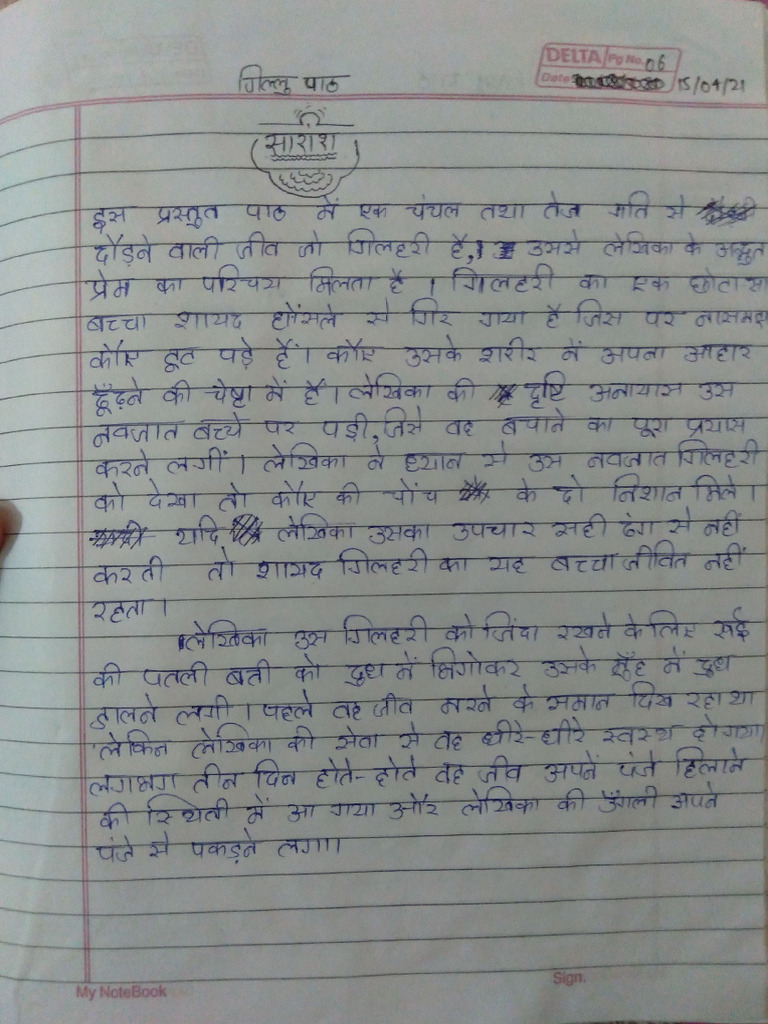 DELTA Pg No. 06
Date 15/04/21
गिल्लु पाठ
सारांश
इस प्रस्तुत पाठ में एक चंचल तथा तेज गति से
दौड़ने वाली जीव जो गिलहरी है, उससे लेखिका के अद्भुत
प्रेम का परिचय मिलता है । गिलहरी का एक छोटा सा
बच्चा शायद होंसले से गिर गया है जिस पर नासमझ
कौए टूट पड़े हैं। कौए उसके शरीर में अपना आहार
ढूँढ़ने की चेष्टा में हैं। लेखिका की दृष्टि अनायास उस
नवजात बच्चे पर पड़ी, जिसे वह बचाने का पूरा प्रयास
करने लगीं। लेखिका ने ध्यान से उस नवजात गिलहरी
को देखा तो कौए की चोंच के दो निशान मिले।
यदि लेखिका उसका उपचार सही ढंग से नहीं
करती तो शायद गिलहरी का यह बच्चा जीवित नहीं
रहता।
लेखिका उस गिलहरी को जिंदा रखने के लिए रूई
की पतली बत्ती को दुध में भिगोकर उसके मुँह में दुध
डालने लगी। पहले वह जीव मरने के समान दिख रहा था
लेकिन लेखिका की सेवा से वह धीरे-धीरे स्वस्थ हो गया।
लगभग तीन दिन होते-होते वह जीव अपनें पंजे हिलाने
की स्थिती में आ गया और लेखिका की उँगली अपने
पंजे से पकड़ने लगा।
My NoteBook
Sign.